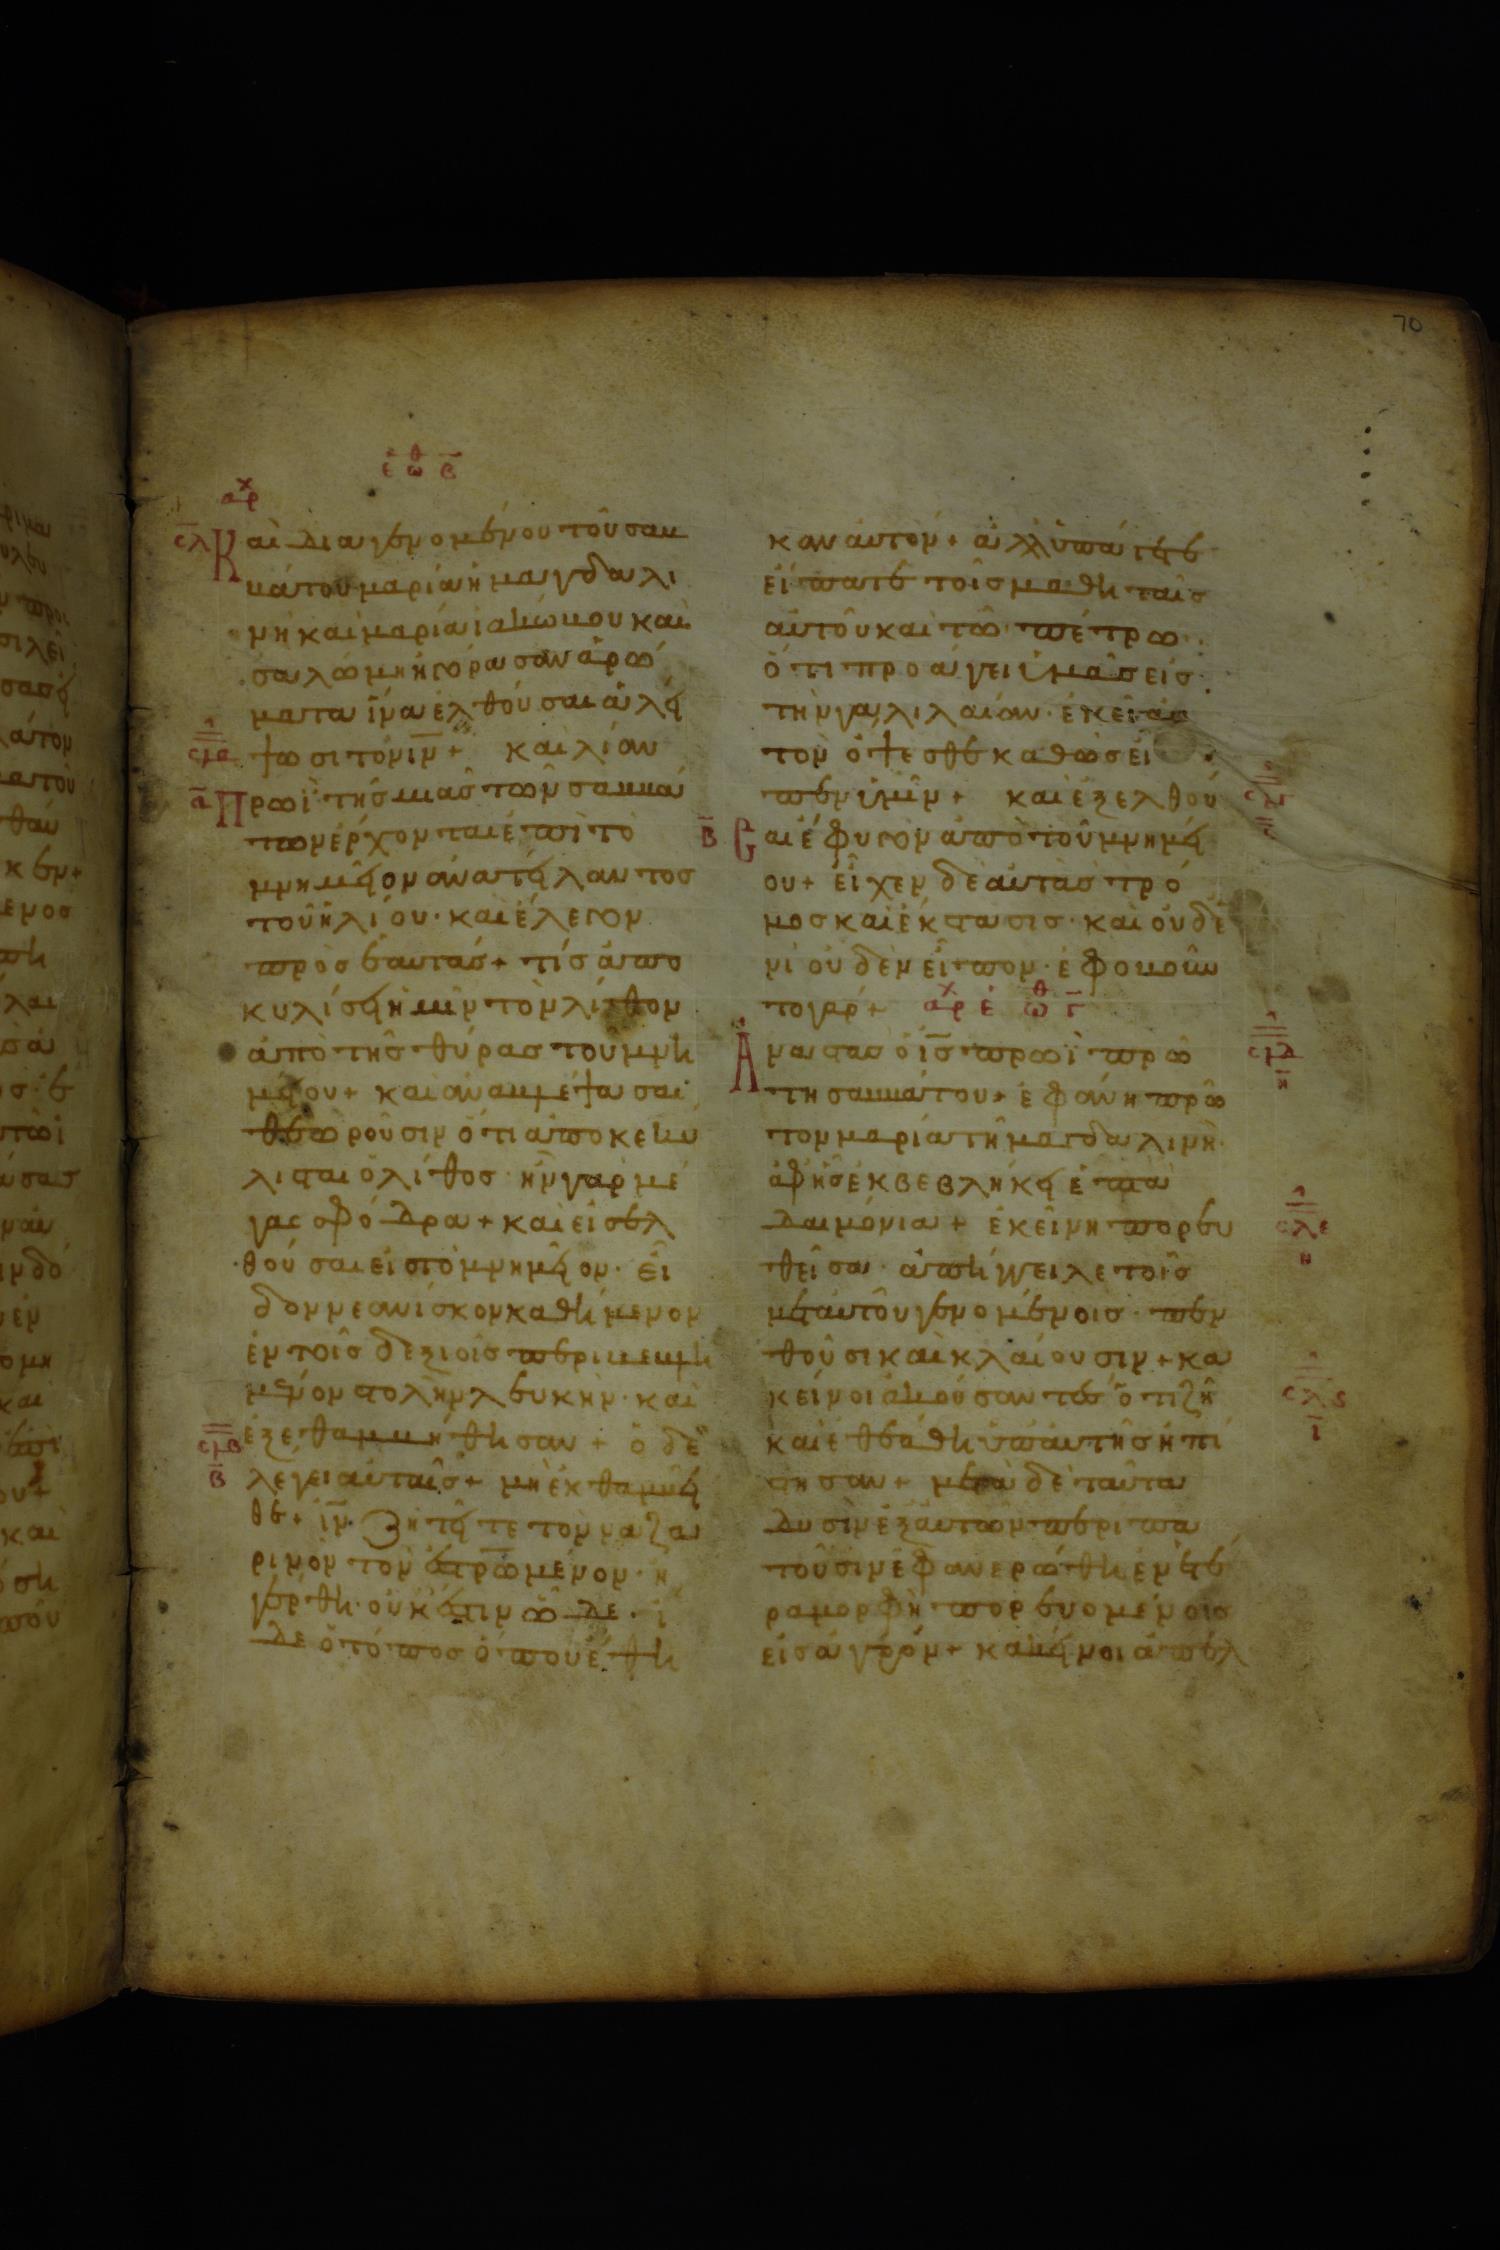 70
ἑωθ β
αρχ
Και διαγενομένου τοῦ σαβ
βάτου μαρία ἡ μαγδαλι
νὴ καὶ μαρία ἰακώβου καὶ
σαλώμη ἠγόρασαν ἀρώ
ματα ἵνα ἐλθοῦσαι ἀλεί
ψωσι τὸν ιν + καὶ λίαν
Πρωῒ τῆς μιᾶς τῶν σαββά
των ἔρχονται ἐπὶ τὸ
μνημεῖον ἀνατείλαντος
τοῦ ἡλίου · καὶ ἔλεγον
πρὸς ἑαυτάς + τίς ἀπο
κυλίσει ἡμῖν τὸν λίθον
ἀπὸ τῆς θύρας τοῦ μνη
μείου + καὶ ἀναβλέψασαι
θεωροῦσιν ὅτι ἀποκεκύ
λισται ὁ λίθος · ἦν γὰρ μέ
γας σφόδρα + καὶ εἰσελ
θοῦσαι εἰς τὸ μνημεῖον · εἶ
δον νεανίσκον καθήμενον
ἐν τοῖς δεξιοῖς περιβεβλη
μένον στολὴν λευκὴν · καὶ
ἐξεθαμβήθησαν + ὁ δὲ
λέγει αὐταῖς + μὴ ἐκθαμβεῖ
θε + ιν Ζητεῖτε τὸν ναζα
ρινὸν τὸν ἐστρωμένον · ἠ
γέρθη · οὐκ ἔστιν ὧδε · ἴ
δε ὁ τόπος ὅπου ἔθη
καν αὐτόν + ἀλλ ὑπάγετε
εἴπατε τοῖς μαθηταῖς
αὐτοῦ καὶ τῶ πέτρω ·
ὅτι προάγει ὑμᾶς εἰς
τὴν γαλιλαίαν · ἐκεῖ αὐ
τὸν ὄψεσθε καθὼς εἶ
πεν ὑμῖν + καὶ ἐξελθοῦ
σαι ἔφυγον ἀπὸ τοῦ μνημεί
ου + εἶχεν δὲ αὐτὰς τρό
μος καὶ ἔκστασις · καὶ οὐδε
νὶ οὐδὲν εἶπον · ἐφοβοῦν
το γάρ + αρχ ἑωθ γ
Ἀναστὰς ὁ ις πρωῒ πρώ
τη σαββάτου + ἐφάνη πρῶ
τον μαρία τῆ μαγδαλινῆ ·
ἀφ ἧς ἐκβεβλήκει ἑπτὰ
δαιμόνια + ἐκείνη πορευ
θεῖσα · ἀπήγγειλε τοῖς
μετ αὐτοῦ γενομένοις · πεν
θοῦσι καὶ κλαίουσιν + κα
κεῖνοι ἀκούσαντες ὅτι ζῆ
καὶ ἐθεάθη ὑπ αὐτῆς ἠπί
στησαν + μετὰ δὲ ταῦτα
δυσὶν ἐξ αὐτῶν περιπα
τοῦσιν ἐφανερώθη ἐν ἑτέ
ρα μορφῆ πορευομένοις
εἰς ἀγρόν + κακεῖνοι ἀπελ